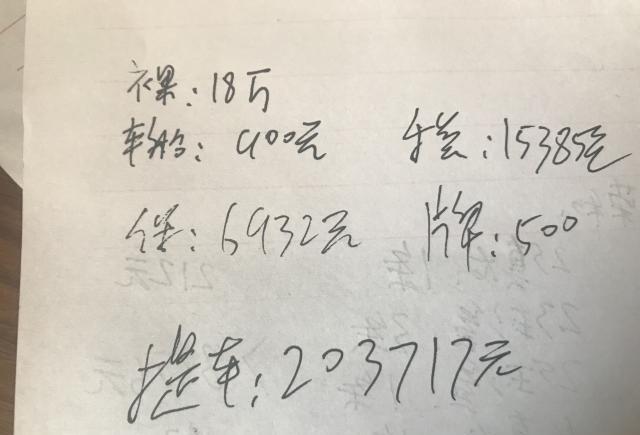 裸：18万
车船：900元 ：15385元
保：6932元 牌：500
提车：203717元